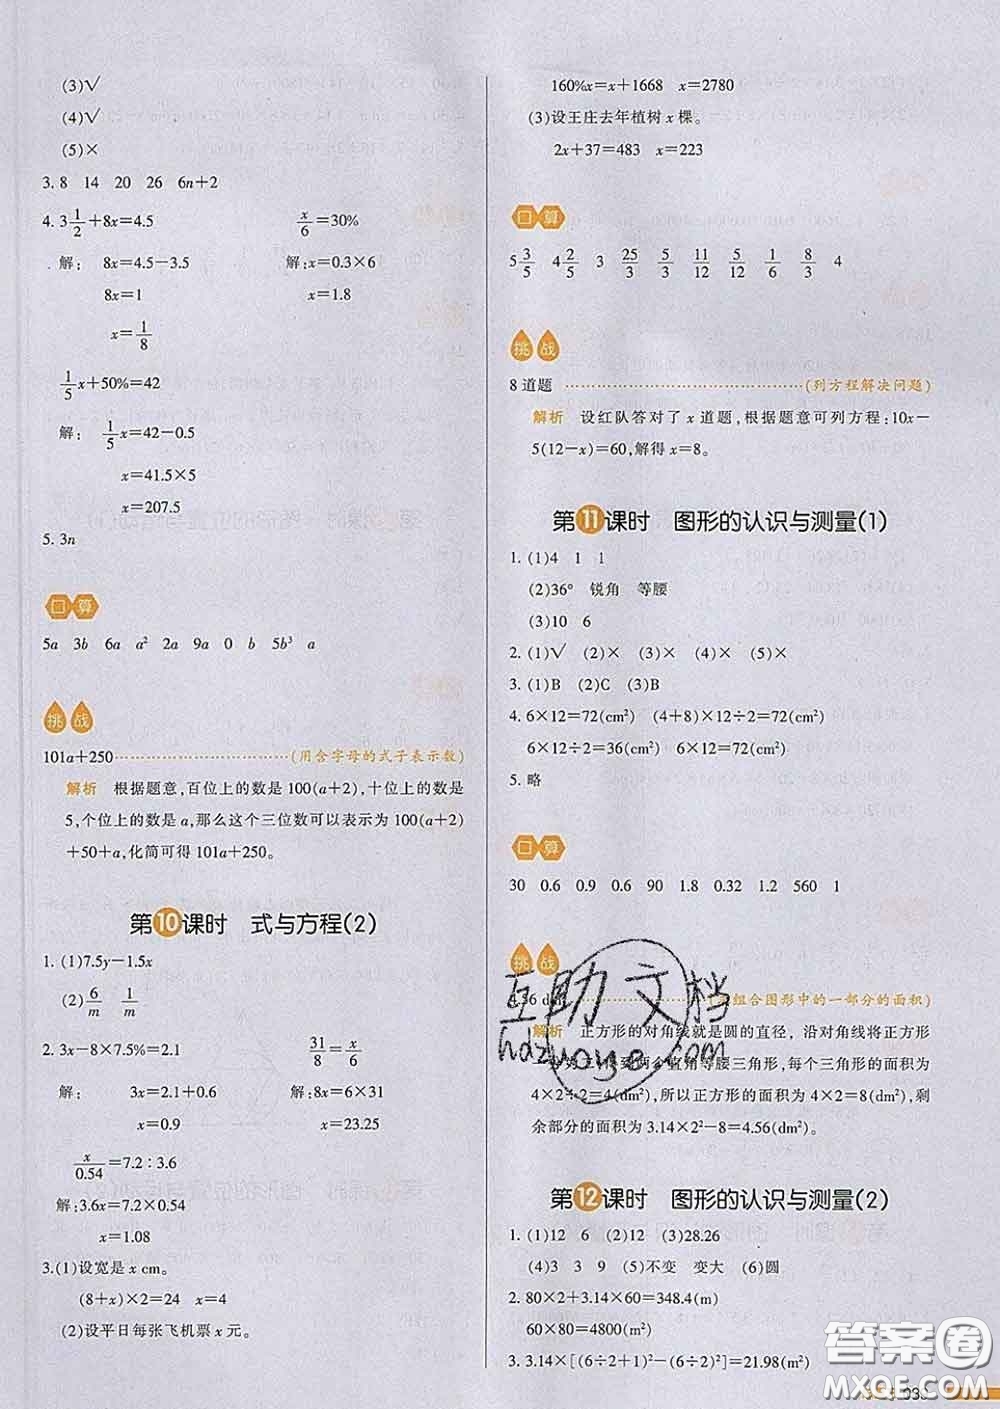 (3)√
(4)√
(5)×
3. 8 14 20 26 6n+2
4. 3 1/2+8x=4.5 x/6=30%
解: 8x=4.5-3.5 解:x=0.3×6
8x=1 x=1.8
x=1/8
1/5x+50%=42
解: 1/5x=42-0.5
x=41.5×5
x=207.5
5. 3n
口算
5a 3b 6a a² 2a 9a 0 b 5b³ a
挑战
101a+250 (用含字母的式子表示数)
解析 根据题意,百位上的数是100(a+2),十位上的数是
5,个位上的数是a,那么这个三位数可以表示为100(a+2)
+50+a,化简可得101a+250。
第10课时 式与方程(2)
1. (1)7.5y-1.5x
(2)6/m 1/m
2. 3x-8×7.5%=2.1 31/8=x/6
解: 3x=2.1+0.6 解:8x=6×31
x=0.9 x=23.25
x/0.54=7.2∶3.6
解:3.6x=7.2×0.54
x=1.08
3.(1)设宽是x cm。
(8+x)×2=24 x=4
(2)设平日每张飞机票x元。
160%x=x+1668 x=2780
(3)设王庄去年植树x棵。
2x+37=483 x=223
口算
5 3/5 4 2/5 3 25/3 5/3 11/12 5/12 1/6 8/3 4
挑战
8道题 (列方程解决问题)
解析 设红队答对了x道题,根据题意可列方程:10x-
5(12-x)=60,解得x=8。
第11课时 图形的认识与测量(1)
1. (1)4 1 1
(2)36° 锐角 等腰
(3)10 6
2. (1)√ (2)× (3)× (4)× (5)×
3. (1)B (2)C (3)B
4. 6×12=72(cm²) (4+8)×12÷2=72(cm²)
6×12÷2=36(cm²) 6×12=72(cm²)
5. 略
口算
30 0.6 0.9 0.6 90 1.8 0.32 1.2 560 1
挑战
组合图形中的一部分的面积)
解析 正方形的对角线就是圆的直径，沿对角线将正方形
得到两个直角等腰三角形,每个三角形的面积为
4×2÷2=4(dm²),所以正方形的面积为4×2=8(dm²),剩
余部分的面积为3.14×2²-8=4.56(dm²)。
互助文档
hdzuoye.com
第12课时 图形的认识与测量(2)
1. (1)12 6 (2)12 (3)28.26
(4)3 3 9 (5)不变 变大 (6)圆
2. 80×2+3.14×60=348.4(m)
60×80=4800(m²)
3. 3.14×[(6÷2+1)²-(6÷2)²]=21.98(m²)
答案圈
MXQE.COM